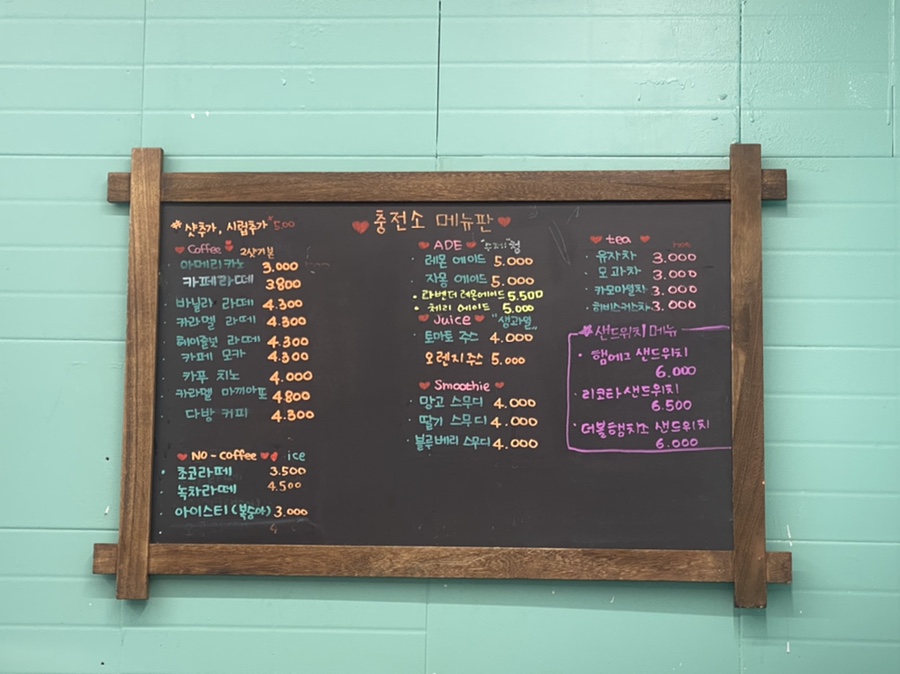 충전소 메뉴판
*샷추가, 시럽추가 500
Coffee 2샷기본
아메리카노 3.000
카페라떼 3.800
바닐라 라떼 4.300
카라멜 라떼 4.300
헤이즐넛 라떼 4.300
카페 모카 4.300
카푸 치노 4.000
카라멜 마끼아또 4.800
다방 커피 4.300
NO-coffee ice
초코라떼 3.500
녹차라떼 4.500
아이스티(복숭아) 3.000
ADE "수제"청
레몬 에이드 5.000
자몽 에이드 5.000
라벤더 레몬에이드 5.500
체리 에이드 5.000
Juice "생과일"
토마토 주스 4.000
오렌지주스 5.000
Smoothie
망고 스무디 4.000
딸기 스무디 4.000
블루베리 스무디 4.000
tea
유자차 3.000
모과차 3.000
카모마일차 3.000
히비스커스차 3.000
샌드위치 메뉴
햄에그 샌드위치
6.000
리코타 샌드위치
6.500
더블햄치즈 샌드위치
6.000